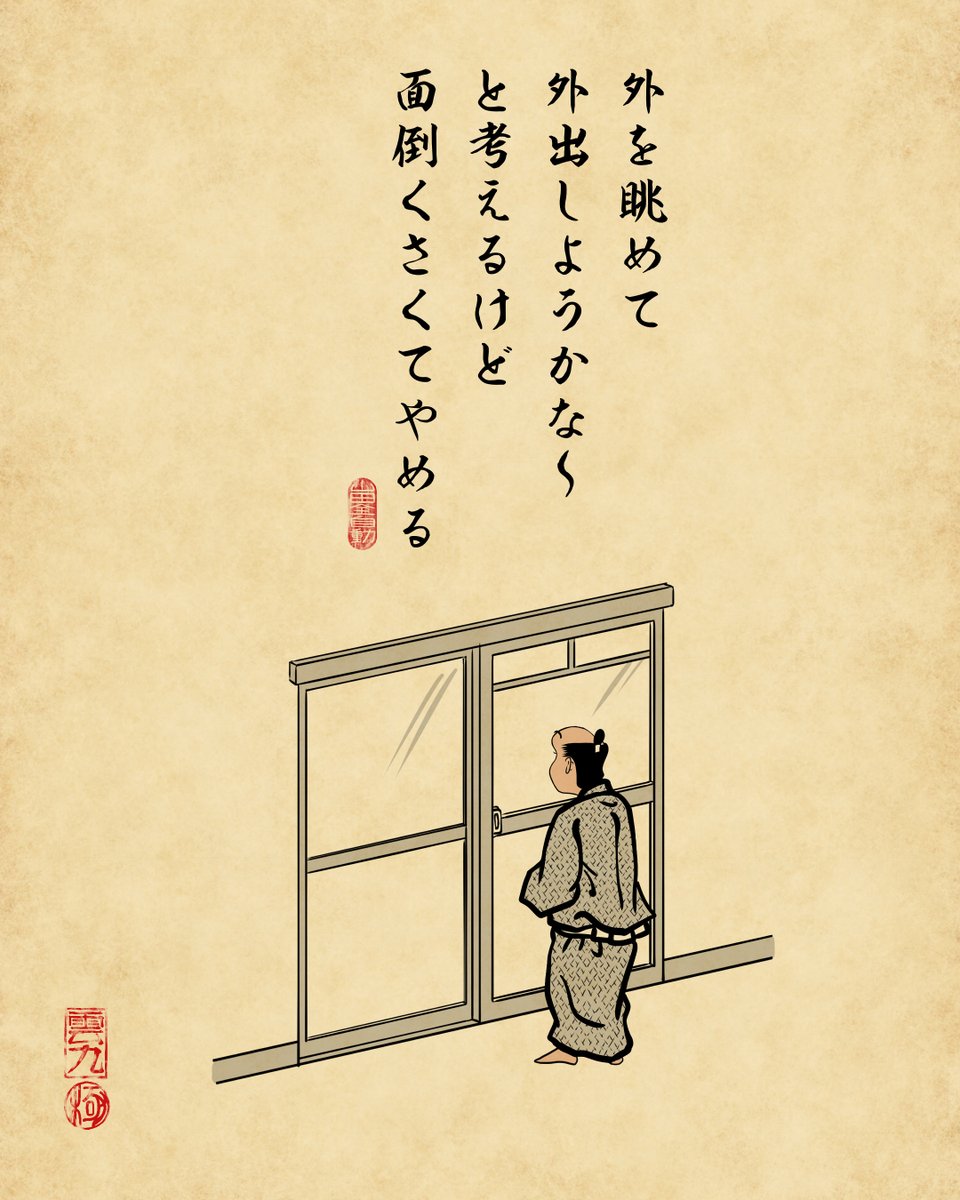 外を眺めて
外出しようかな〜
と考えるけど
面倒くさくてやめる